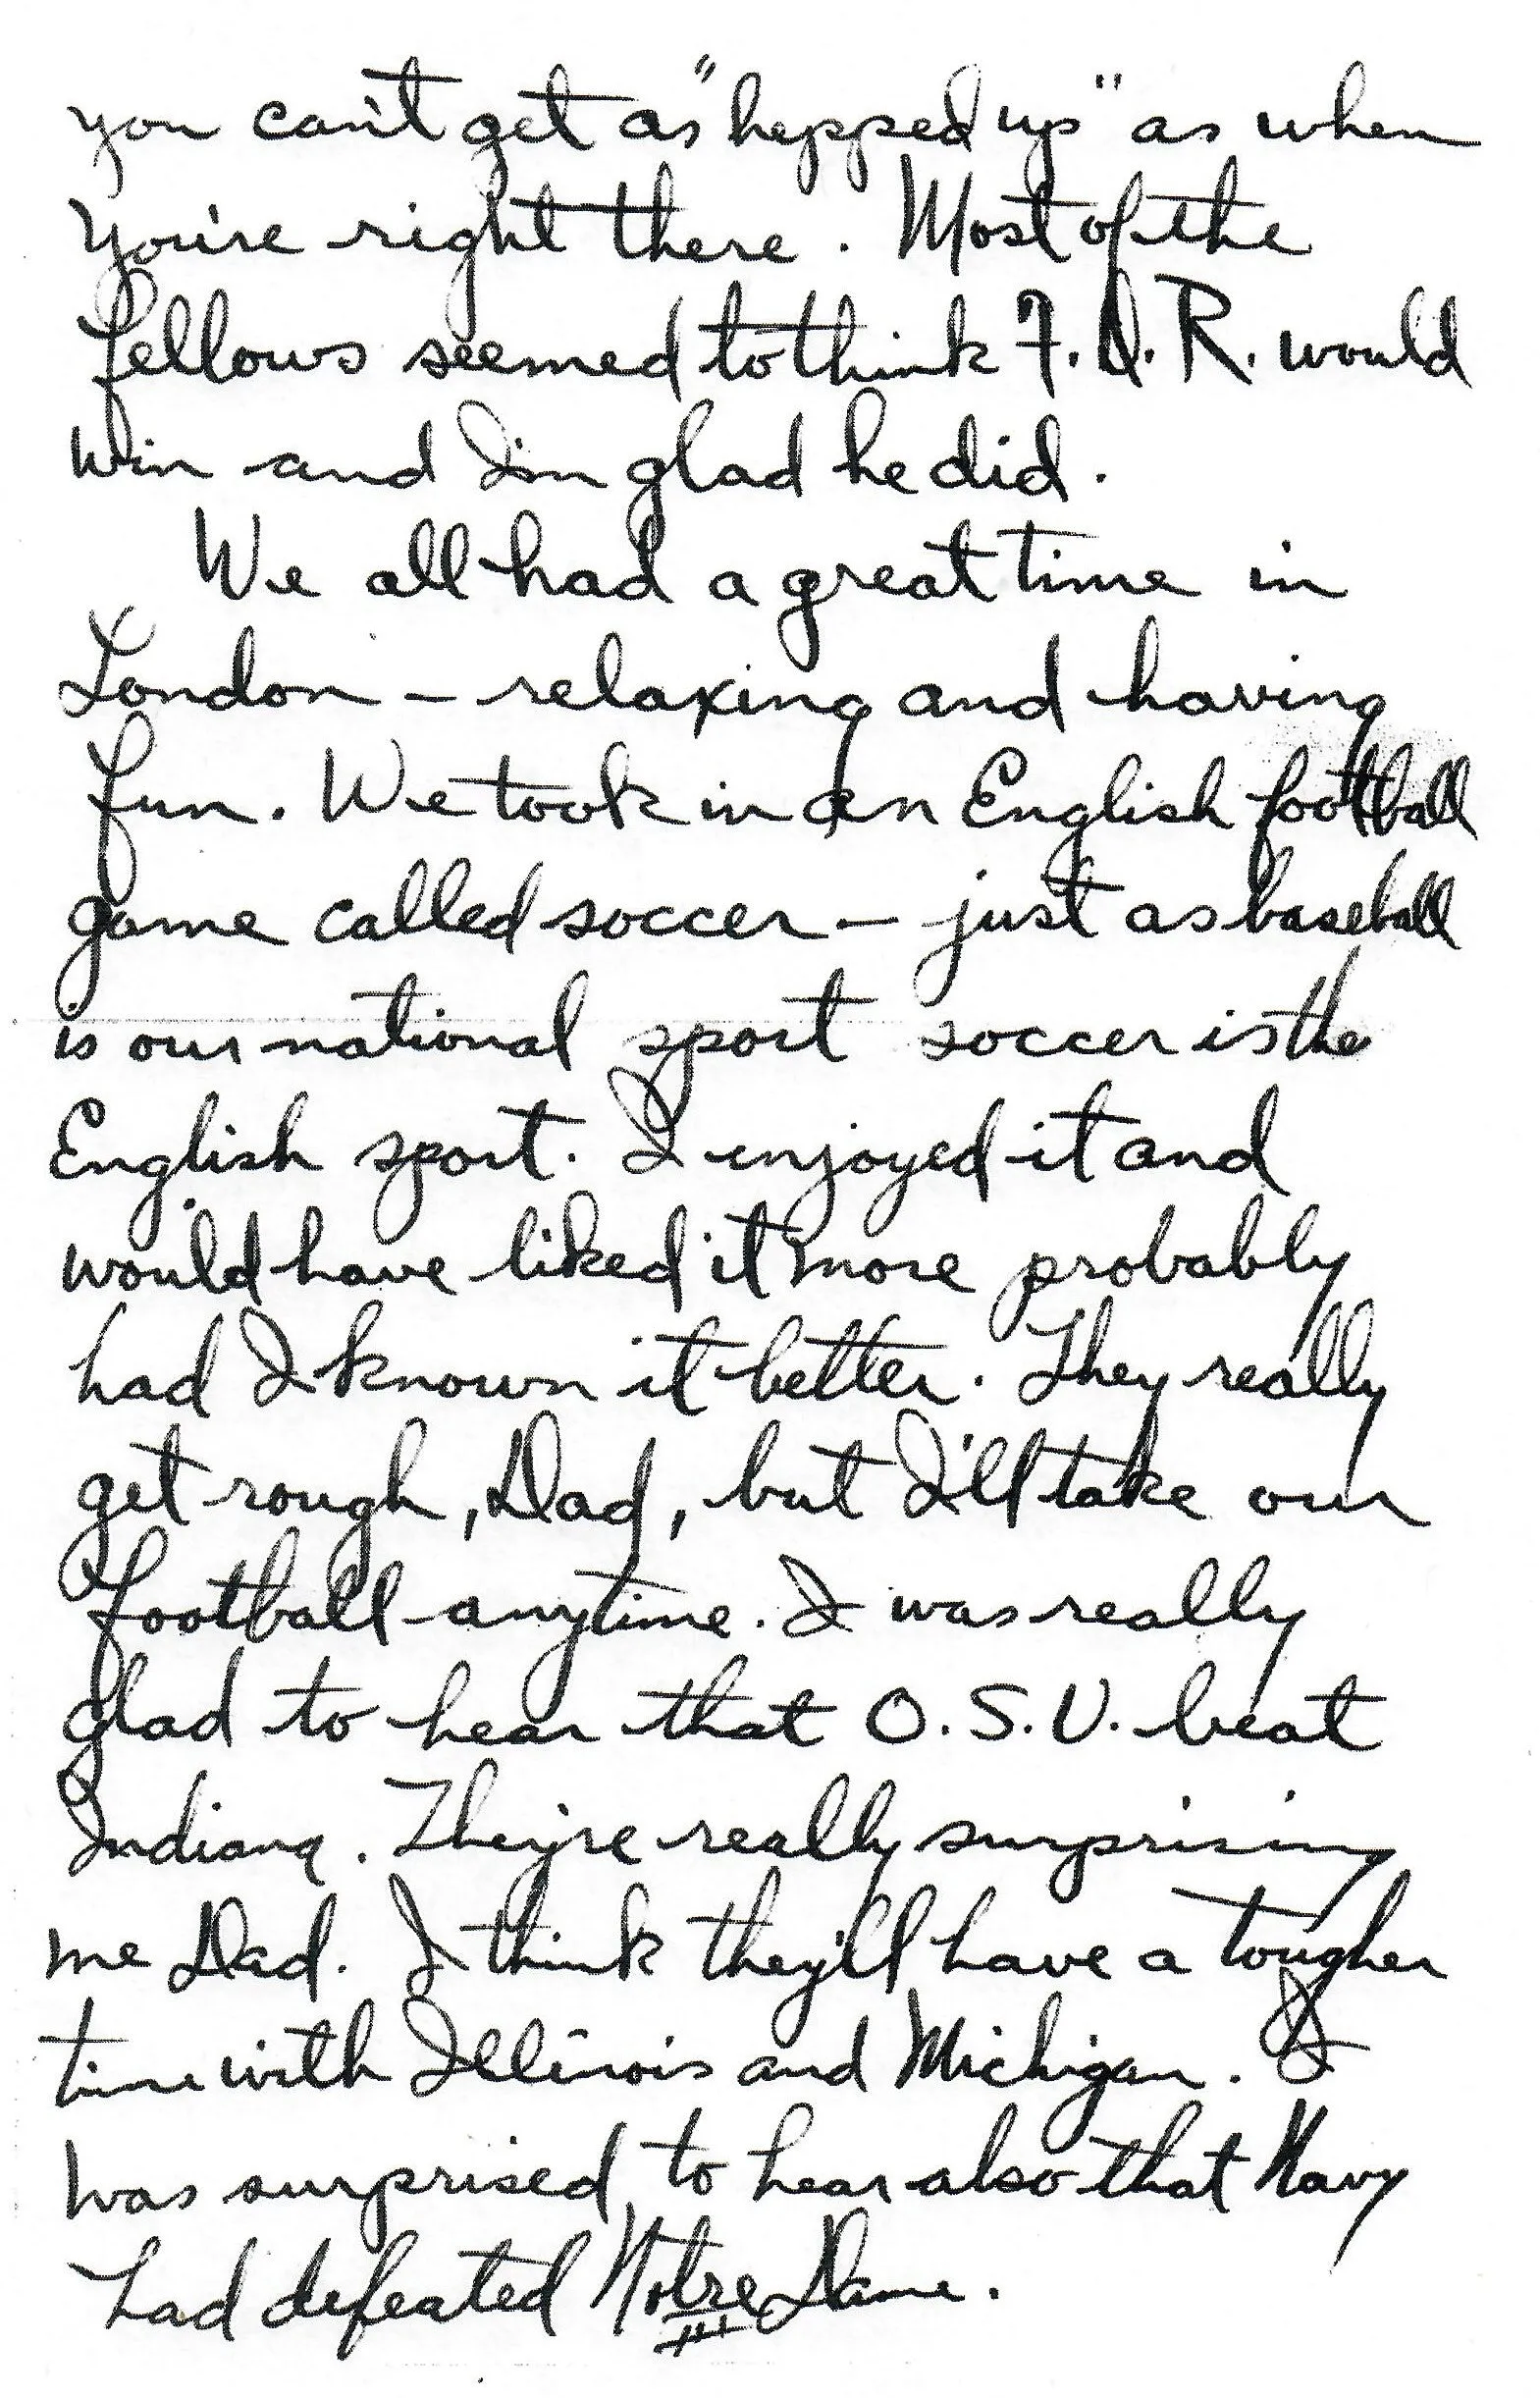 you can't get as "hepped up" as when
you're right there. Most of the
fellows seemed to think F.D.R. would
win and I'm glad he did.
We all had a great time in
London – relaxing and having
fun. We took in an English football
game called soccer – just as baseball
is our national sport soccer is the
English sport. I enjoyed it and
would have liked it more probably
had I known it better. They really
get rough, Dad, but I'll take our
football anytime. I was really
glad to hear that O.S.U. beat
Indiana. They're really surprising
me Dad. I think they'll have a tougher
time with Illinois and Michigan. I
was surprised to hear also that Navy
had defeated Notre Dame.
III